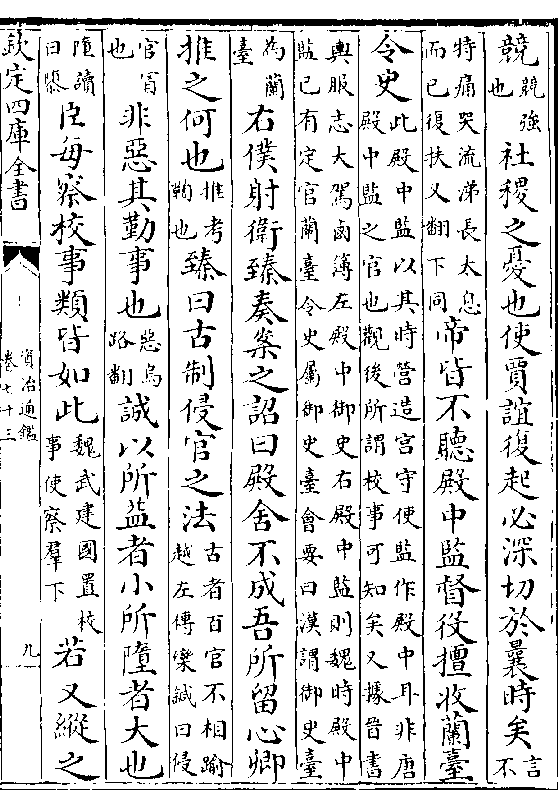 競競強也社稷之憂也使賈誼復起必深切於曩時矣言不
特痛哭流涕長太息而已復扶又翻下同帝皆不聽殿中監督役擅收蘭臺
令史此殿中監以其時營造宮守使監作殿中耳非唐殿中監之官也觀後所謂校事可知矣又據晉書
輿服志大駕鹵簿左殿中御史右殿中監則魏時殿中監已有定官蘭臺令史屬御史臺會要曰漢謂御史臺
為蘭臺右僕射衛臻奏案之詔曰殿舍不成吾所留心卿
推之何也推考鞫也臻曰古制侵官之法古者百官不相踰越左傳欒鍼曰侵
官冒也非惡其勤事也惡烏路翻誠以所益者小所墮者大也
墮讀曰隳臣每察校事類皆如此魏武建國置校事使察羣下若又縱之
欽定四庫全書
資治通鑑
卷七十三
九